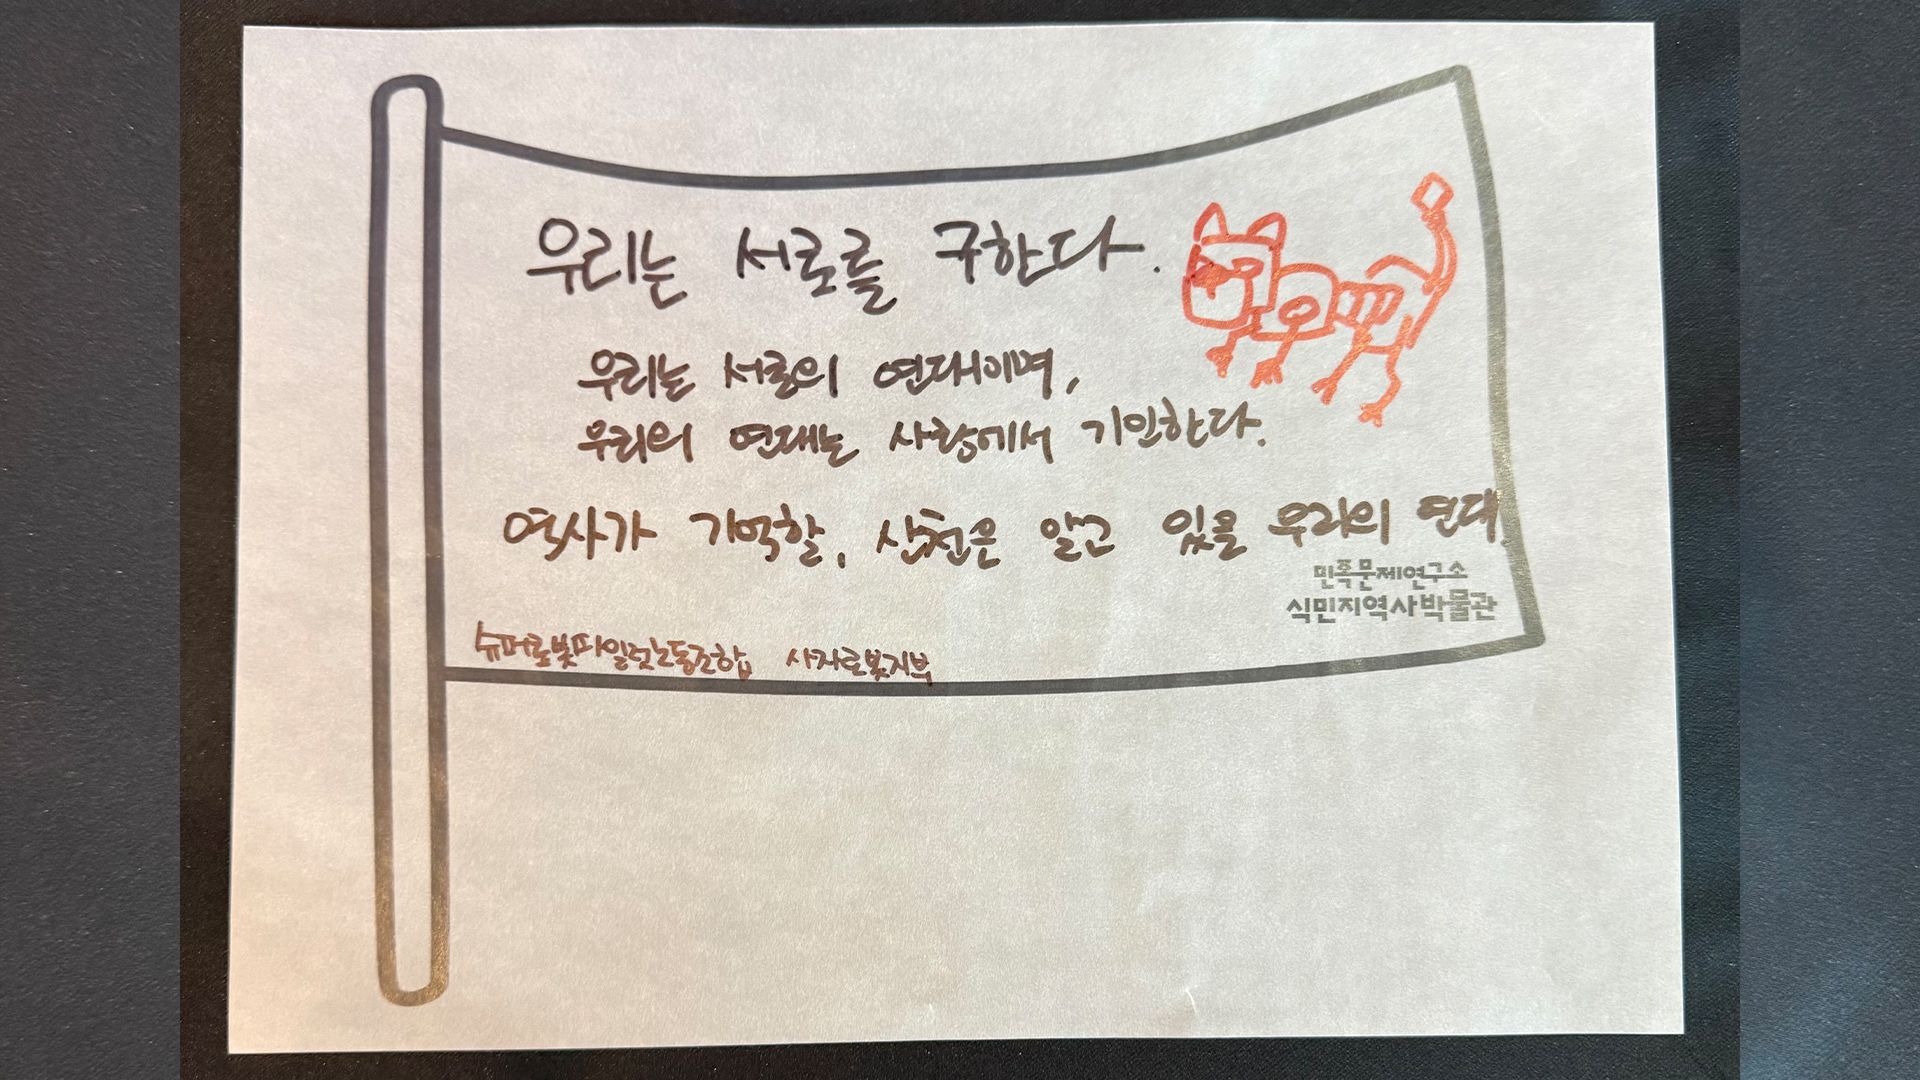 우리는 서로를 구한다.
우리는 서로의 연대이며,
우리의 연대는 사랑에서 기인한다.
역사가 기억할, 산천은 알고 있을 우리의 연대.
민족문제연구소
식민지역사박물관
슈퍼로봇파일럿노동조합 사자로봇지부